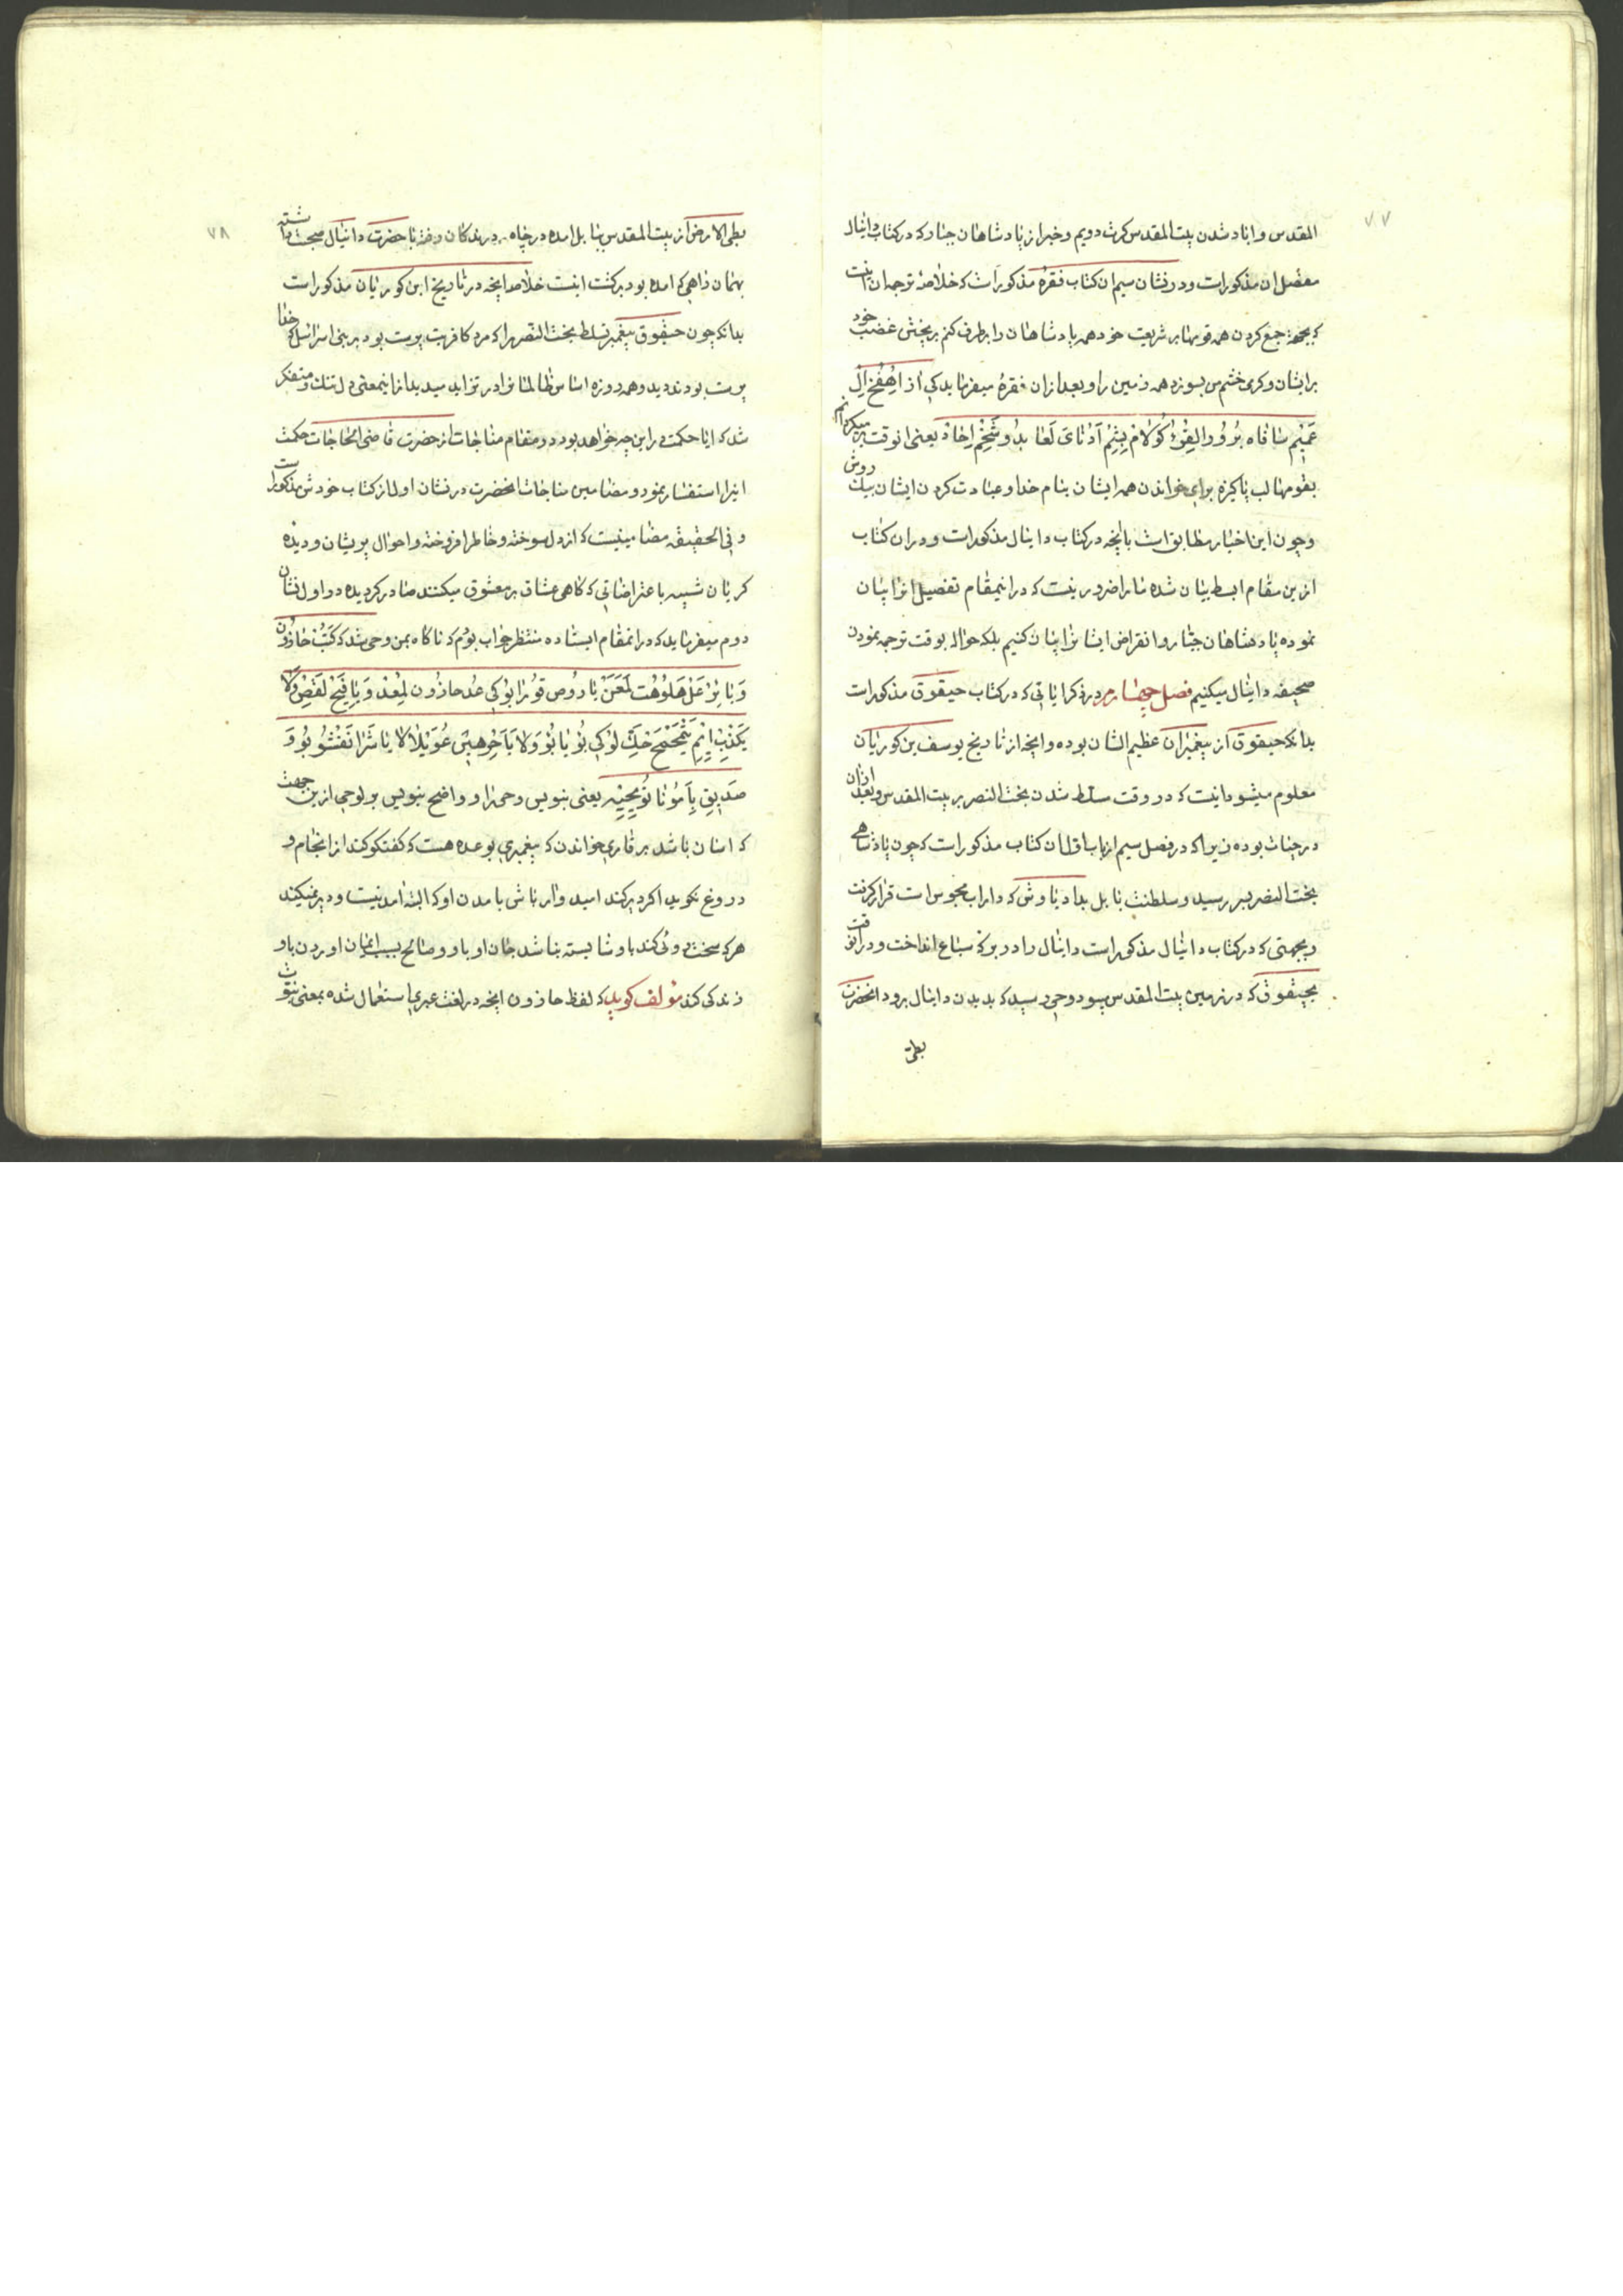 ۷۷
المقدس و اباد شدن بیت المقدس کرت دویم و خبر از پادشاهان جبار که در کتاب دانیال
مفصل ان مذکور است و در نشان سیم ان کتاب فقرهٔ مذکور است که خلاصهٔ ترجمه ان اینست
که بجهة جمع کردن همه قومها بر شریعت خود همه پادشاهان را برطرف کنم بریختن غضب خود
بر ایشان و کرمی خشم من بسوزد همه زمین را و بعد از ان فقرهٔ میفرماید کی از اهفخ ال
عمیم سافاه برورا لقرو کولام بشم آدنای لعابدو شخم احاد یعنی انوقت بر میکردانم
بقومها لب پاکیزه برای خواندن همه ایشان بنام خدا و عبادت کردن ایشان بیک روش
و چون این اخبار مطابق است بانچه در کتاب دانیال مذکور است و در ان کتاب
ازین مقام ابسط بیان شده ما را ضرور نیست که در اینمقام تفصیل انرا بیان
نموده پادشاهان جبار و انقراض ایشانرا بیان کنیم بلکه حواله بوقت ترجمه نمودن
صحیفه دانیال میکنیم فصل چهارم در ذکر ایاتی که در کتاب حیقوق مذکور است
بدانکه حیقوق از پیغمبران عظیم الشان بوده و انچه از تاریخ یوسف بن کوریان
معلوم میشود اینست که در وقت مسلط شدن بخت النصر بر بیت المقدس و بعد از ان
در حیات بوده زیرا که در فصل سیم از باب اول ان کتاب مذکور است که چون پادشاهی
بخت النصر بسر رسید و سلطنت بابل بداریاوش که داراب مجوس است قرار کرفت
و بجهتی که در کتاب دانیال مذکور است دانیال را در برکهٔ سباع انداخت و در انوقت
بحیقوق که در زمین بیت المقدس میبود وحی رسید که بدیدن دانیال برود انحضرت
بطی
۷۸
بطی الارض از بیت المقدس ببابل امده در چاه درندکان رفته با حضرت دانیال صحبت داشته
بهمان راهی که امده بود برکشت اینست خلاصه انچه در تاریخ ابن کوریان مذکور است
بدانکه چون حیقوق پیغمبر تسلط بخت النصر را که مرد کافر بت پرست بود بر بنی اسرائیل که خدا
پرست بودند دید و همه روزه اساس ظالمانرا در تزاید میدید از اینمعنی دل تنک و متفکر
شد که ایا حکمت در این چه خواهد بود در مقام مناجات از حضرت قاضی الحاجات حکمت
انرا استفسار نمود و مضامین مناجات انحضرت در نشان اول از کتاب خودش مذکور است
و فی الحقیقه مضامینیست که از دل سوخته و خاطر افروخته و احوال پریشان و دیده
کریان شبیه باعتراضاتی که کاهی عشاق بر معشوق میکنند صادر کردیده در اول نشان
دوم میفرماید که در انمقام ایستاده منتظر جواب بودم که ناکاه بمن وحی شد که کتب حازون
و بائر عل هلوهت لمعن یاروص قورا بو کی عد حازون لمعد و یافیح لقص ولا
یکذب ایم یتمحمح حک لو کی بو یابو ولا یاخر هیی عویلا لا یاشرا نفشو بو و
صدیق بآمونا تو یحییه یعنی بنویس وحی را و واضح بنویس بر لوحی از بن جهت
که اسان باشد بر قاری خواندن که پیغمبری بوعده هست که کفتکو کند از انجام و
دروغ نکوید اکر دیر کند امیدوار باش بامدن او که البته امدنیست و دیر نمیکند
هر که سخت روئی کند باو شایسته نباشد جان او باو و صالح بسبب ایمان اوردن باو
زندکی کند مؤلف کوید که لفظ حازون انچه در لغت عبری استعمال شده بمعنی نبوت